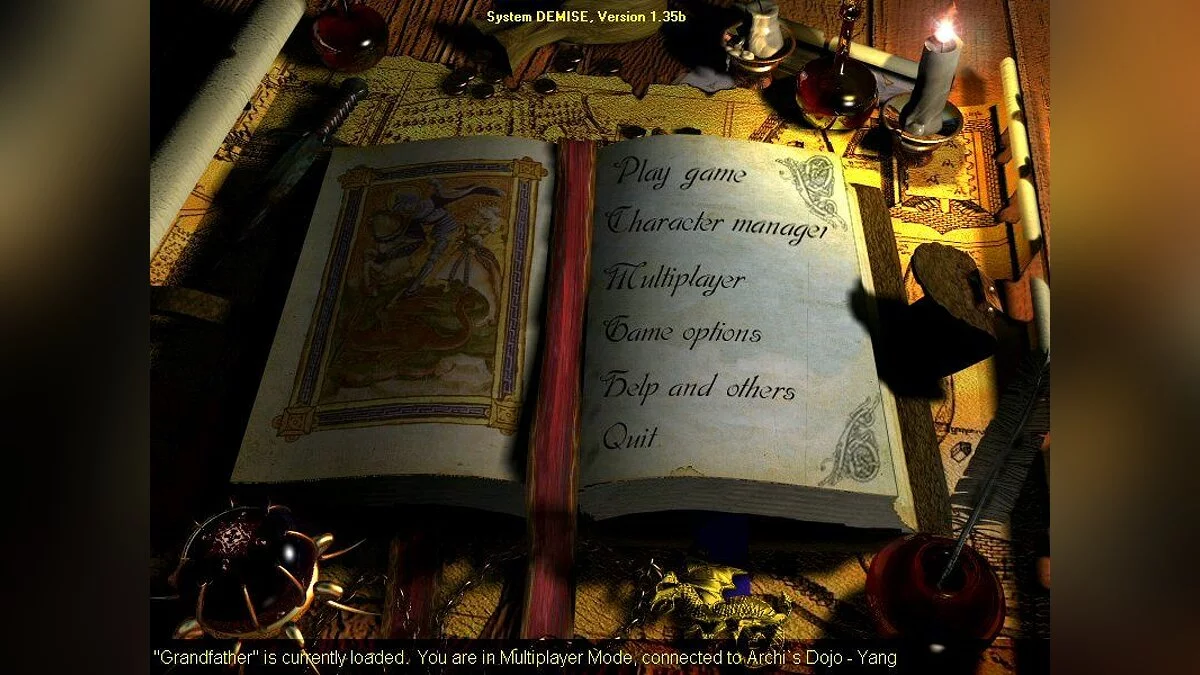 System DEMISE, Version 1.35b
Play game
Character manager
Multiplayer
Game options
Help and others
Quit
"Grandfather" is currently loaded. You are in Multiplayer Mode, connected to Archi`s Dojo - Yang